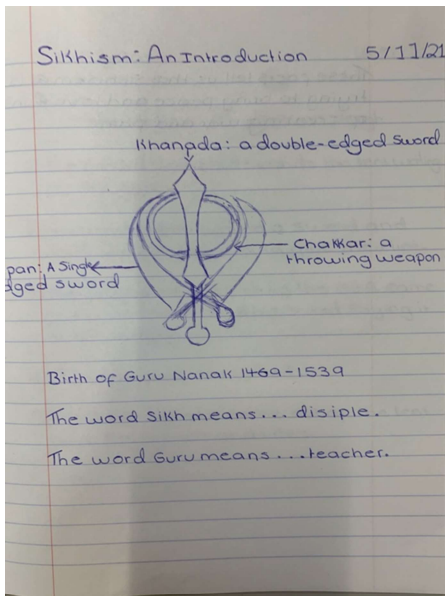 Sikhism: An Introduction 5/11/21
Khanada: a double-edged sword
Chakkar: a
throwing weapon
pan: A Single
dged sword
Birth of Guru Nanak 1469-1539
The word Sikh means... disiple.
The word Guru means...teacher.